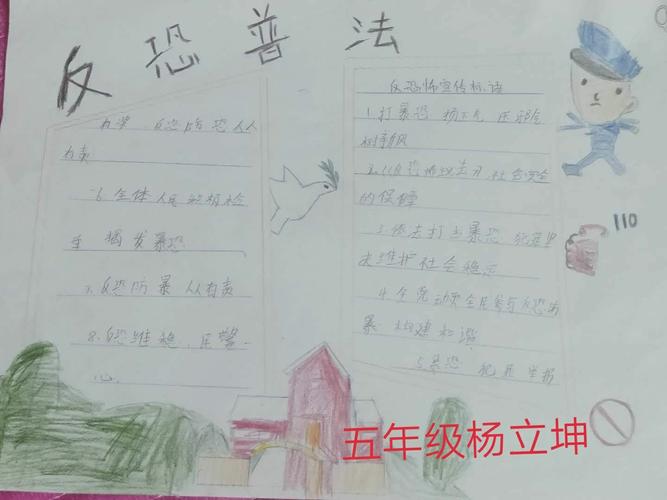 反恐普法
反恐防恐人人
有责
6.全体人民积极检
举 揭发暴恐
7.反恐防暴人人有责
8.反恐维稳
心.
反恐怖宣传标语
1.打暴恐 扬正气
树新风
社会安全
的保障
3.依法打击暴恐 犯罪
决维护社会稳定
4.全党动员全民参与反恐防
暴 构建和谐
5.暴恐 犯罪 举报
110
五年级杨立坤